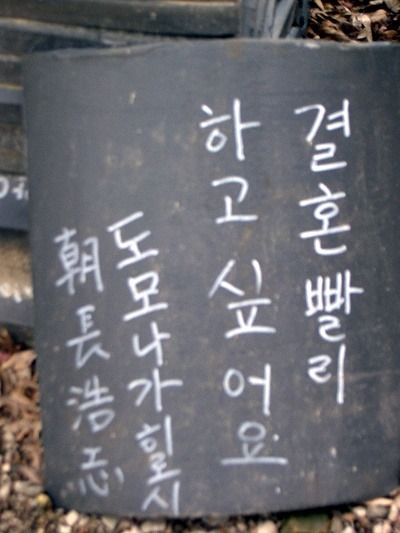 결혼빨리
하고싶어요
도모나가히로시
朝長浩志